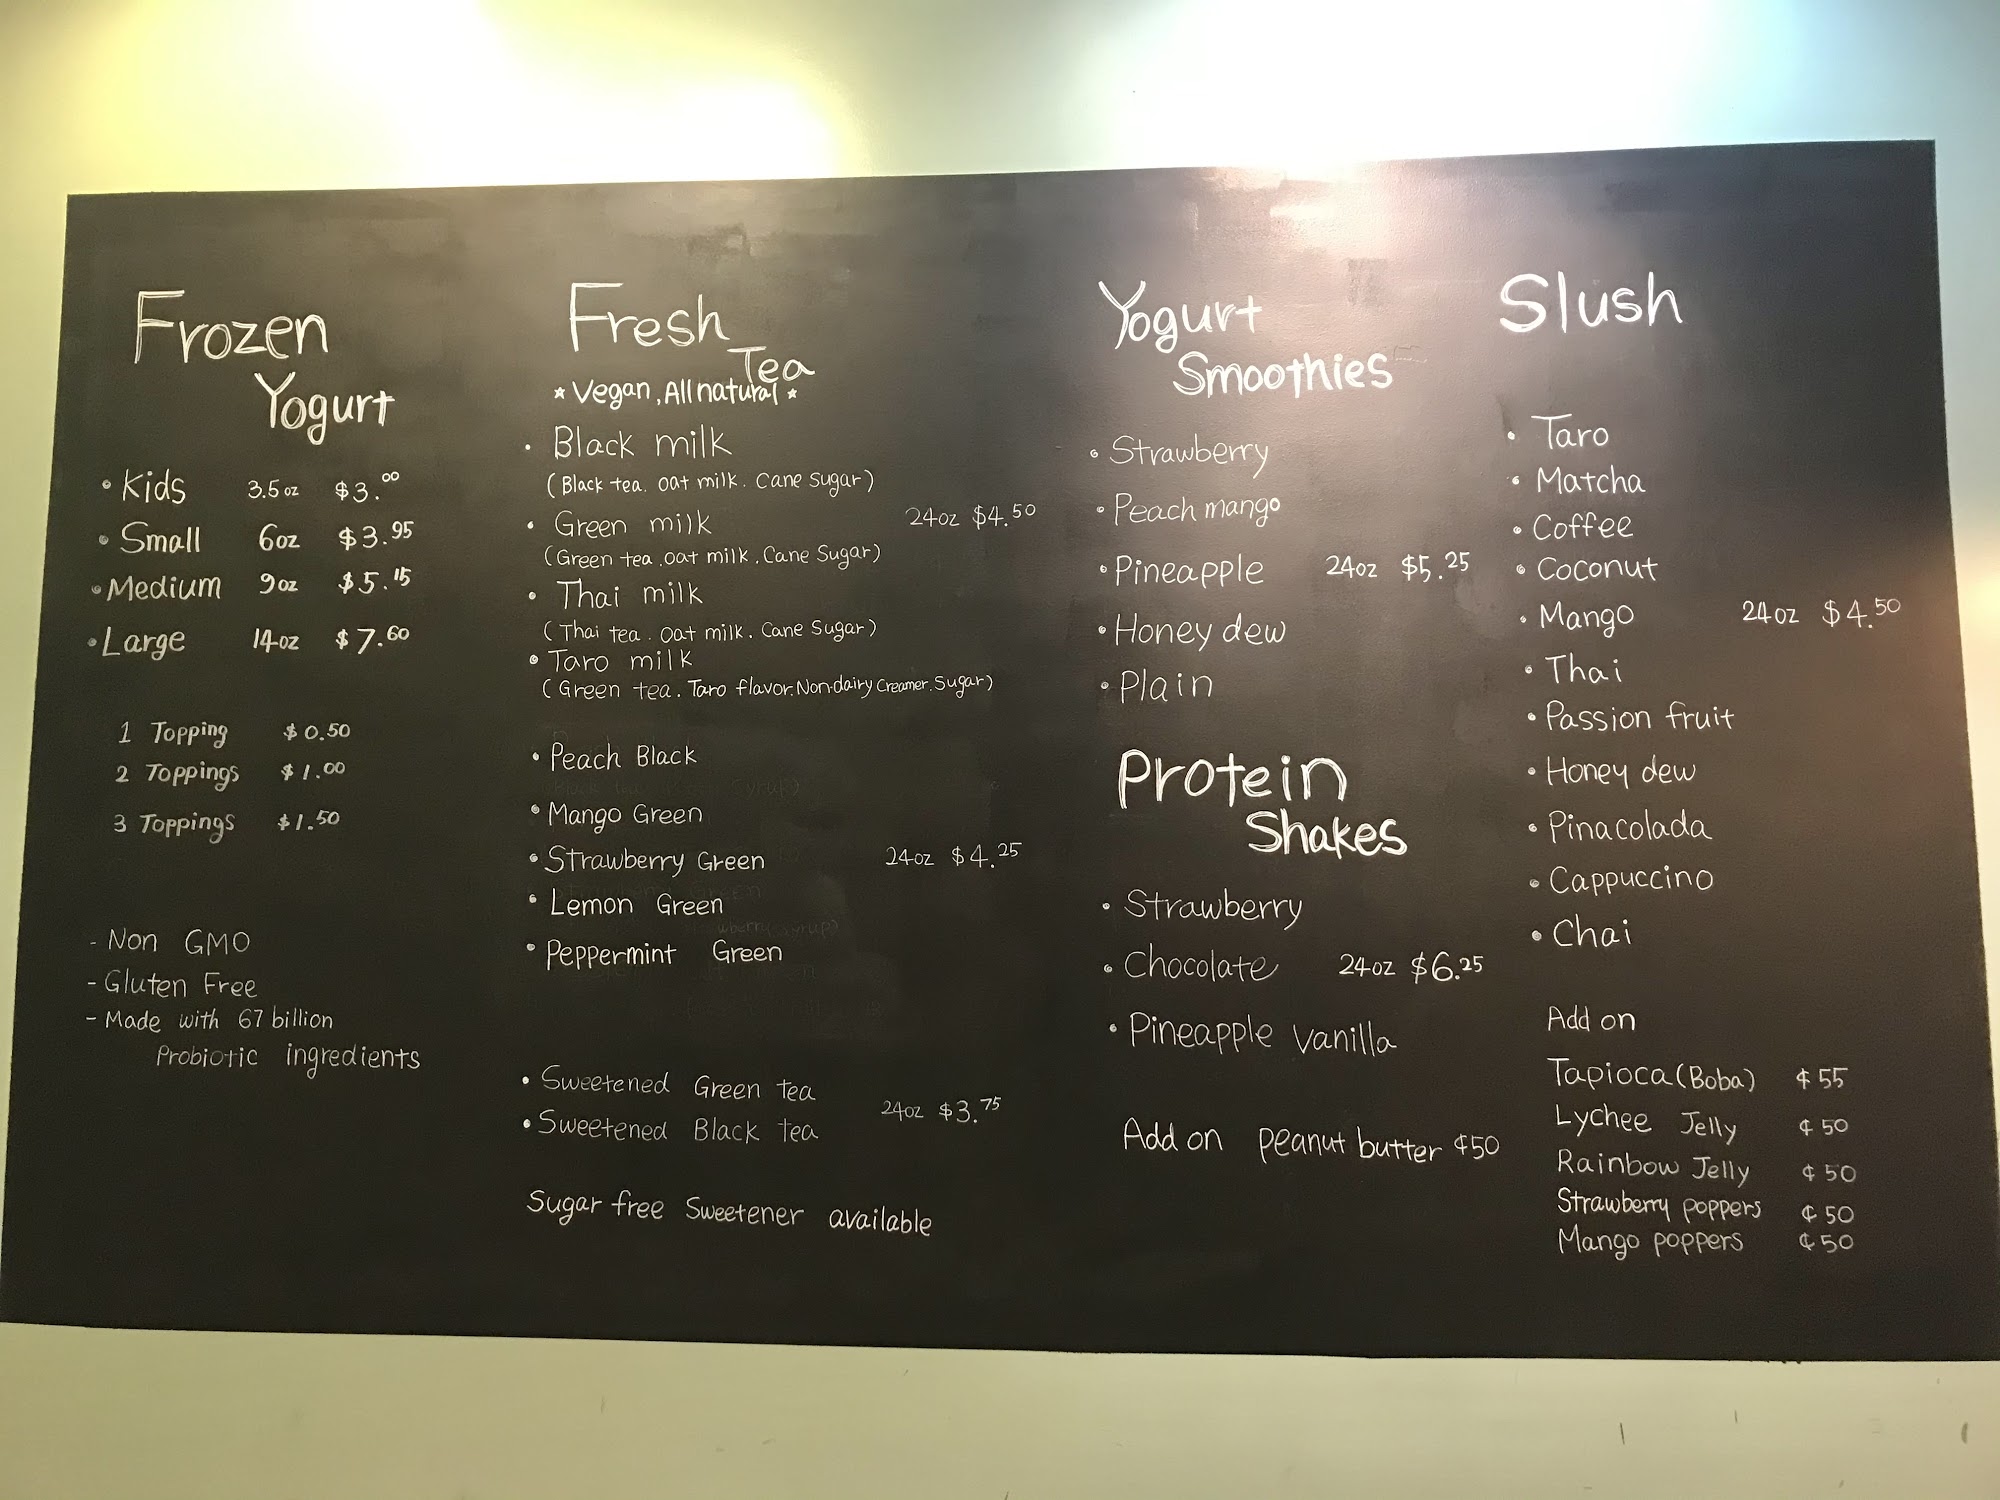 Frozen
Yogurt
• Kids 3.5oz $3.00
• Small 6oz $3.95
• Medium 9oz $5.15
• Large 14oz $7.60
1 Topping $0.50
2 Toppings $1.00
3 Toppings $1.50
- Non GMO
- Gluten Free
- Made with 67 billion
Probiotic ingredients
Fresh
Tea
* Vegan, All natural *
• Black milk
(Black tea. oat milk. Cane Sugar)
• Green milk 24oz $4.50
(Green tea. oat milk. Cane Sugar)
• Thai milk
(Thai tea. oat milk. Cane Sugar)
• Taro milk
(Green tea. Taro flavor. Non-dairy Creamer. Sugar)
• Peach Black
• Mango Green
• Strawberry Green 24oz $4.25
• Lemon Green
• Peppermint Green
• Sweetened Green tea
24oz $3.75
• Sweetened Black tea
Sugar free Sweetener available
Yogurt
Smoothies
• Strawberry
• Peach mango
• Pineapple 24oz $5.25
• Honey dew
• Plain
Protein
Shakes
• Strawberry
• Chocolate 24oz $6.25
• Pineapple vanilla
Add on peanut butter ¢50
Slush
• Taro
• Matcha
• Coffee
• Coconut
• Mango 24oz $4.50
• Thai
• Passion fruit
• Honey dew
• Pinacolada
• Cappuccino
• Chai
Add on
Tapioca (Boba) ¢55
Lychee Jelly ¢50
Rainbow Jelly ¢50
Strawberry poppers ¢50
Mango poppers ¢50